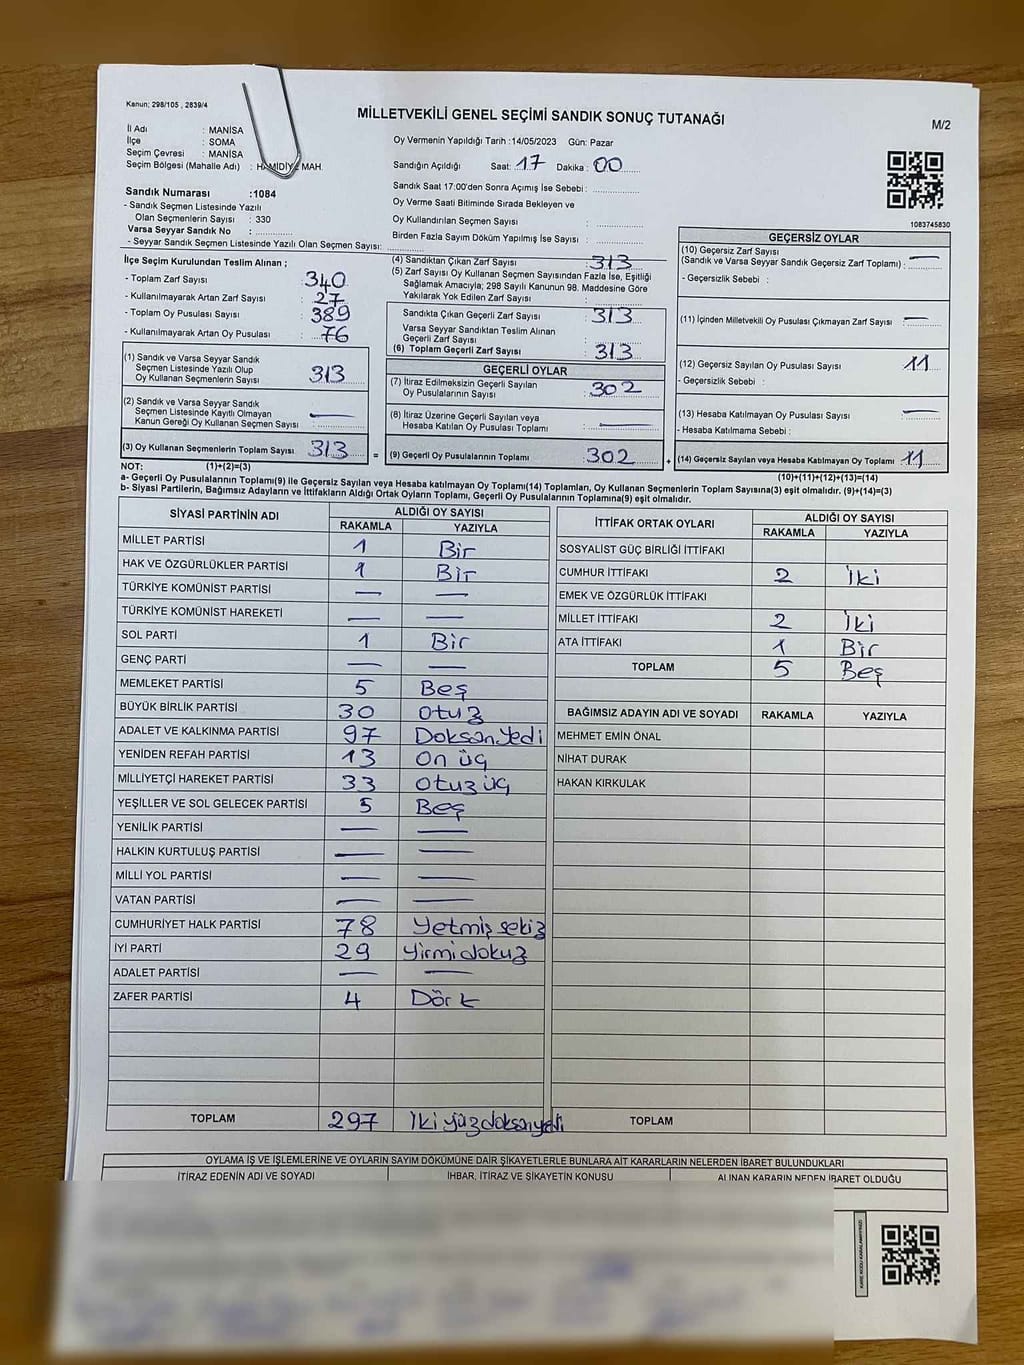 Kanun; 298/105 , 2839/4
MİLLETVEKİLİ GENEL SEÇİMİ SANDIK SONUÇ TUTANAĞI
M/2
İl Adı : MANİSA
İlçe : SOMA
Seçim Çevresi : MANİSA
Seçim Bölgesi (Mahalle Adı) : HAMİDİYE MAH.
Oy Vermenin Yapıldığı Tarih :14/05/2023 Gün: Pazar
Sandığın Açıldığı Saat: 17 Dakika : 00
Sandık Saat 17:00'den Sonra Açımış İse Sebebi :
Oy Verme Saati Bitiminde Sırada Bekleyen ve
Oy Kullandırılan Seçmen Sayısı :
Birden Fazla Sayım Döküm Yapılmış İse Sayısı :
1083745830
Sandık Numarası :1084
- Sandık Seçmen Listesinde Yazılı
Olan Seçmenlerin Sayısı : 330
Varsa Seyyar Sandık No :
- Seyyar Sandık Seçmen Listesinde Yazılı Olan Seçmen Sayısı:
İlçe Seçim Kurulundan Teslim Alınan ;
- Toplam Zarf Sayısı : 340
- Kullanılmayarak Artan Zarf Sayısı : 27
- Toplam Oy Pusulası Sayısı : 389
- Kullanılmayarak Artan Oy Pusulası : 76
(1) Sandık ve Varsa Seyyar Sandık
Seçmen Listesinde Yazılı Olup
Oy Kullanan Seçmenlerin Sayısı : 313
(2) Sandık ve Varsa Seyyar Sandık
Seçmen Listesinde Kayıtlı Olmayan
Kanun Gereği Oy Kullanan Seçmen Sayısı : —
(3) Oy Kullanan Seçmenlerin Toplam Sayısı : 313 =
(4) Sandıktan Çıkan Zarf Sayısı : 313
(5) Zarf Sayısı Oy Kullanan Seçmen Sayısından Fazla İse, Eşitliği
Sağlamak Amacıyla; 298 Sayılı Kanunun 98. Maddesine Göre
Yakılarak Yok Edilen Zarf Sayısı :
Sandıkta Çıkan Geçerli Zarf Sayısı : 313
Varsa Seyyar Sandıktan Teslim Alınan
Geçerli Zarf Sayısı :
(6) Toplam Geçerli Zarf Sayısı : 313
GEÇERLİ OYLAR
(7) İtiraz Edilmeksizin Geçerli Sayılan
Oy Pusulalarının Sayısı : 302
(8) İtiraz Üzerine Geçerli Sayılan veya
Hesaba Katılan Oy Pusulası Toplamı : —
(9) Geçerli Oy Pusulalarının Toplamı : 302 +
GEÇERSİZ OYLAR
(10) Geçersiz Zarf Sayısı
(Sandık ve Varsa Seyyar Sandık Geçersiz Zarf Toplamı) : —
- Geçersizlik Sebebi :
(11) İçinden Milletvekili Oy Pusulası Çıkmayan Zarf Sayısı : —
(12) Geçersiz Sayılan Oy Pusulası Sayısı : 11
- Geçersizlik Sebebi :
(13) Hesaba Katılmayan Oy Pusulası Sayısı : —
- Hesaba Katılmama Sebebi :
(14) Geçersiz Sayılan veya Hesaba Katılmayan Oy Toplamı : 11
NOT: (1)+(2)=(3) (10)+(11)+(12)+(13)=(14)
a- Geçerli Oy Pusulalarının Toplamı(9) ile Geçersiz Sayılan veya Hesaba katılmayan Oy Toplamı(14) Toplamları, Oy Kullanan Seçmenlerin Toplam Sayısına(3) eşit olmalıdır. (9)+(14)=(3)
b- Siyasi Partilerin, Bağımsız Adayların ve İttifakların Aldığı Ortak Oyların Toplamı, Geçerli Oy Pusulalarının Toplamına(9) eşit olmalıdır.
SİYASİ PARTİNİN ADI ALDIĞI OY SAYISI
RAKAMLA YAZIYLA
MİLLET PARTİSİ 1 Bir
HAK VE ÖZGÜRLÜKLER PARTİSİ 1 Bir
TÜRKİYE KOMÜNİST PARTİSİ — —
TÜRKİYE KOMÜNİST HAREKETİ — —
SOL PARTİ 1 Bir
GENÇ PARTİ — —
MEMLEKET PARTİSİ 5 Beş
BÜYÜK BİRLİK PARTİSİ 30 otuz
ADALET VE KALKINMA PARTİSİ 97 Doksanyedi
YENİDEN REFAH PARTİSİ 13 on üç
MİLLİYETÇİ HAREKET PARTİSİ 33 otuz üç
YEŞİLLER VE SOL GELECEK PARTİSİ 5 Beş
YENİLİK PARTİSİ — —
HALKIN KURTULUŞ PARTİSİ — —
MİLLİ YOL PARTİSİ — —
VATAN PARTİSİ — —
CUMHURİYET HALK PARTİSİ 78 Yetmiş sekiz
İYİ PARTİ 29 yirmi dokuz
ADALET PARTİSİ — —
ZAFER PARTİSİ 4 Dört
TOPLAM 297 İki yüz doksan yedi
İTTİFAK ORTAK OYLARI ALDIĞI OY SAYISI
RAKAMLA YAZIYLA
SOSYALİST GÜÇ BİRLİĞİ İTTİFAKI
CUMHUR İTTİFAKI 2 İki
EMEK VE ÖZGÜRLÜK İTTİFAKI
MİLLET İTTİFAKI 2 İki
ATA İTTİFAKI 1 Bir
TOPLAM 5 Beş
BAĞIMSIZ ADAYIN ADI VE SOYADI RAKAMLA YAZIYLA
MEHMET EMİN ÖNAL
NİHAT DURAK
HAKAN KIRKULAK
TOPLAM
OYLAMA İŞ VE İŞLEMLERİNE VE OYLARIN SAYIM DÖKÜMÜNE DAİR ŞİKAYETLERLE BUNLARA AİT KARARLARIN NELERDEN İBARET BULUNDUKLARI
İTİRAZ EDENİN ADI VE SOYADI İHBAR, İTİRAZ VE ŞİKAYETİN KONUSU ALINAN KARARIN NEDEN İBARET OLDUĞU
KARE KODU KARALAMAYINIZ!